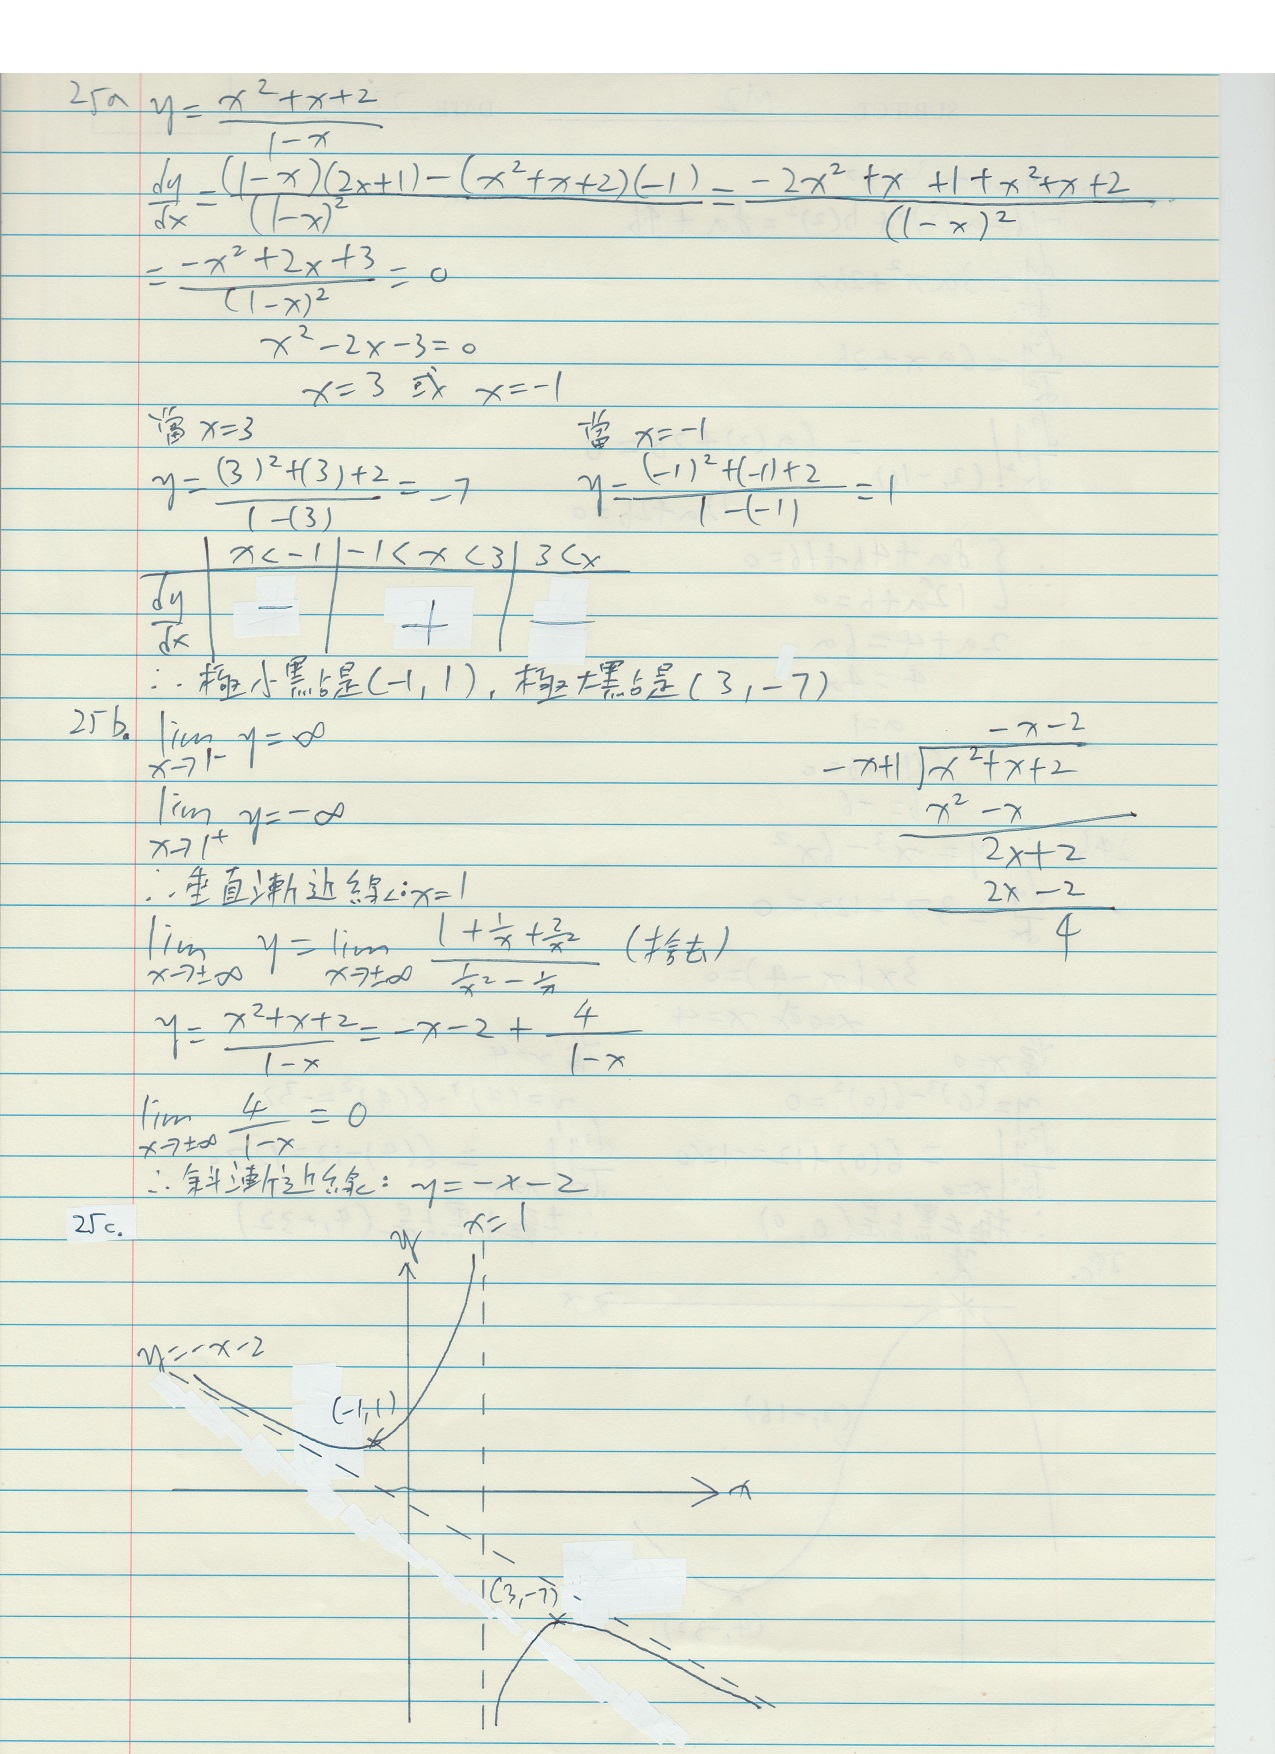 25a y = (x²+x+2)/(1-x)
dy/dx = ((1-x)(2x+1)-(x²+x+2)(-1))/(1-x)² = (-2x²+x+1+x²+x+2)/(1-x)²
= (-x²+2x+3)/(1-x)² = 0
x²-2x-3=0
x=3 或 x=-1
當 x=3 當 x=-1
y = ((3)²+(3)+2)/(1-(3)) = -7 y = ((-1)²+(-1)+2)/(1-(-1)) = 1
x<-1 | -1<x<3 | 3<x
dy/dx | - | + | -
∴極小點是(-1,1), 極大點是(3,-7)
25b. lim x→1⁻ y=∞
lim x→1⁺ y=-∞
∴垂直漸近線:x=1
lim x→±∞ y = lim x→±∞ (1+1/x+2/x²)/(1/x²-1/x) (捨去)
y = (x²+x+2)/(1-x) = -x-2+4/(1-x)
lim x→±∞ 4/(1-x) = 0
∴斜漸近線: y=-x-2
-x-2
-x+1 x²+x+2
x²-x
2x+2
2x-2
4
25c.
x=1
y
y=-x-2
(-1,1)
x
(3,-7)